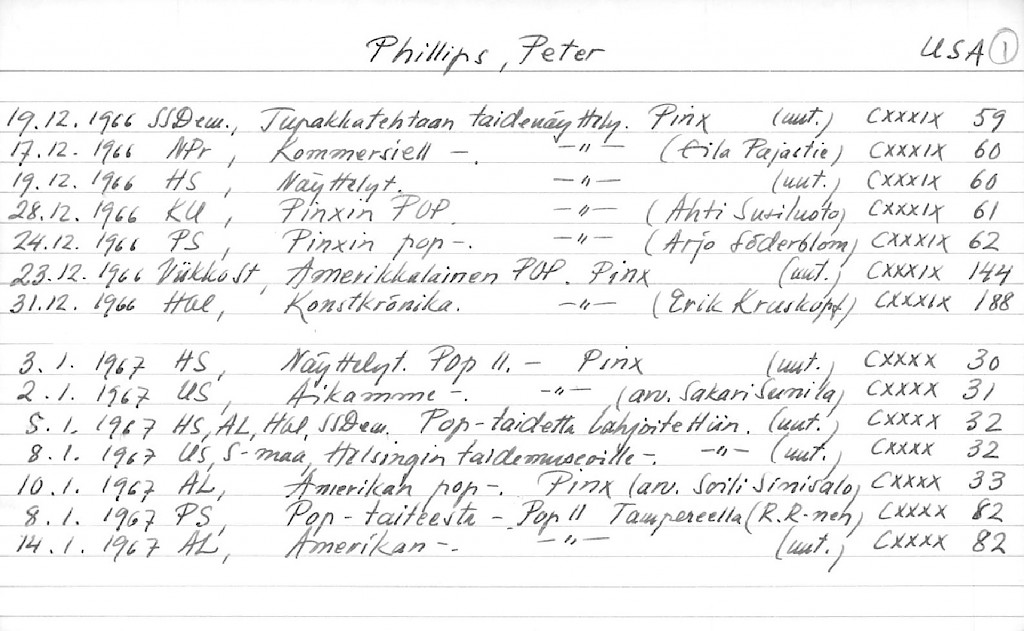 Phillips, Peter USA 1
19.12.1966 SSDem., Tupakkatehtaan taidenäyttely. Pinx (uut.) CXXXIX 59
17.12.1966 NPr, Kommersiell -. -"- (Eila Pajastie) CXXXIX 60
19.12.1966 HS, Näyttelyt. -"- (uut.) CXXXIX 60
28.12.1966 KU, Pinxin POP. -"- (Ahti Susiluoto) CXXXIX 61
24.12.1966 PS, Pinxin pop-. -"- (Arjo Söderblom) CXXXIX 62
23.12.1966 ViikkoSt, Amerikkalainen POP. Pinx (uut.) CXXXIX 144
31.12.1966 Hbl, Konstkrönika. -"- (Erik Kruskopf) CXXXIX 188
3.1.1967 HS, Näyttelyt. Pop II. - Pinx (uut.) CXXXX 30
2.1.1967 US, Aikamme -. -"- (arv. Sakari Sunila) CXXXX 31
5.1.1967 HS, AL, Hbl, SSDem. Pop-taidetta lahjoitettiin. (uut.) CXXXX 32
8.1.1967 US, S-maa, Helsingin taidemuseoille-. -"- (uut.) CXXXX 32
10.1.1967 AL, Amerikan pop-. Pinx (arv. Soili Sinisalo) CXXXX 33
8.1.1967 PS, Pop-taiteesta - Pop II Tampereella (R.R-nen) CXXXX 82
14.1.1967 AL, Amerikan -. -"- (uut.) CXXXX 82